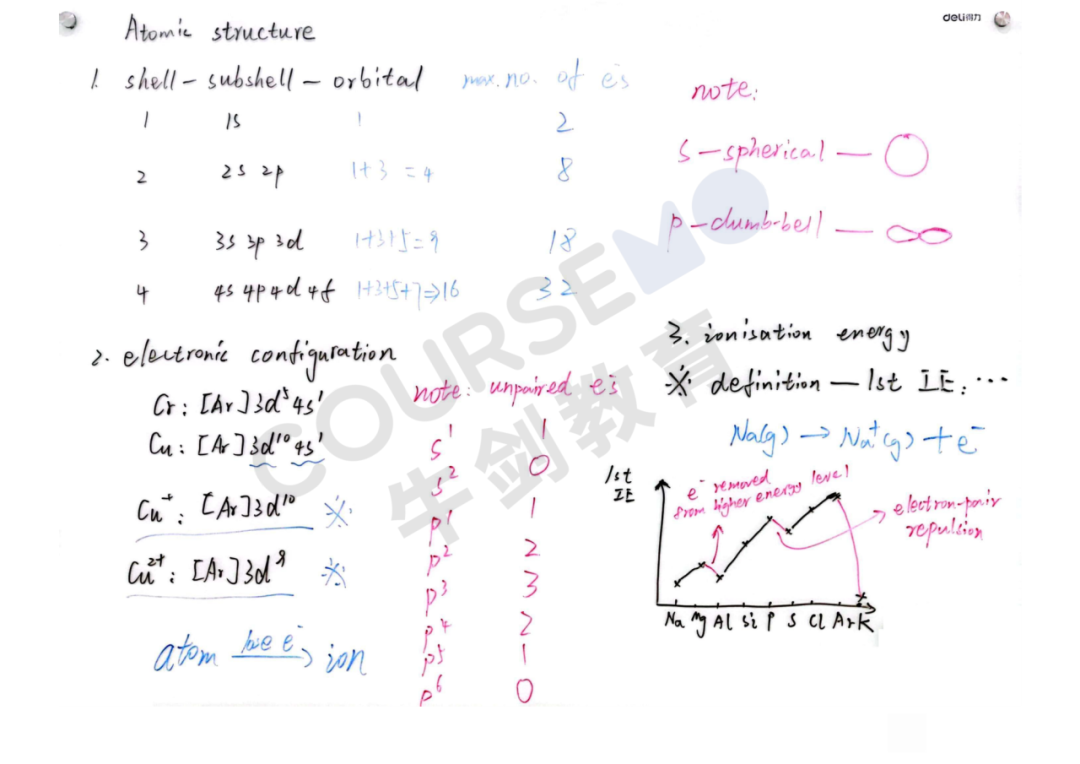 deli得力
Atomic structure
1. shell – subshell – orbital max. no. of e⁻s
1 1s 1 2
2 2s 2p 1+3 = 4 8
3 3s 3p 3d 1+3+5=9 18
4 4s 4p 4d 4f 1+3+5+7⇒16 32
note:
s – spherical —
p – dumb-bell —
2. electronic configuration
Cr: [Ar]3d⁵4s¹
Cu: [Ar]3d¹⁰4s¹
Cu⁺: [Ar]3d¹⁰ ※
Cu²⁺: [Ar]3d⁹ ※
atom lose e⁻ → ion
note: unpaired e⁻s
s¹ 1
s² 0
p¹ 1
p² 2
p³ 3
p⁴ 2
p⁵ 1
p⁶ 0
3. ionisation energy
※ definition – 1st IE: ...
Na(g) → Na⁺(g) + e⁻
1st
IE
e⁻ removed
from higher energy level
electron-pair
repulsion
Na Mg Al Si P S Cl Ar K
COURSEMO
牛剑教育